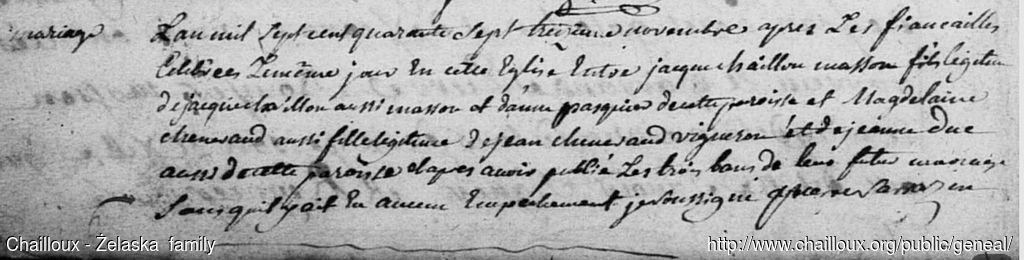 mariage
L'an mil sept cent quarante sept treizieme novembre apres Les fiancailles
Celebrees Le meme jour En cette Eglise Entre jacque chaillou masson fils legitime
de jacque chaillou aussi masson et d'anne pasquier de cette paroisse et Magdelaine
chenevaud aussi fille legitime de jean chenevaud vigneron et de jeanne Duc
aussi de cette paroisse et apres avoir publié Les trois bans de leur futur mariage
sans quil y ait Eu aucun Empechement je soussigne
Chailloux - Żelaska family
http://www.chailloux.org/public/geneal/